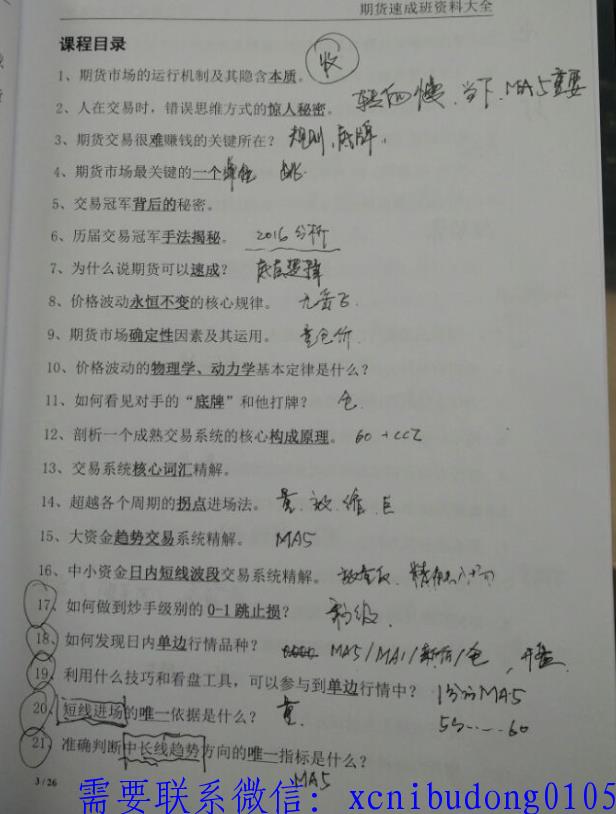 期货速成班资料大全
课程目录
1、期货市场的运行机制及其隐含本质。 收
2、人在交易时，错误思维方式的惊人秘密。 当下、MA5重要
3、期货交易很难赚钱的关键所在？ 规则，底牌。
4、期货市场最关键的一个单位
5、交易冠军背后的秘密。
6、历届交易冠军手法揭秘。 2016分析
7、为什么说期货可以速成？
8、价格波动永恒不变的核心规律。
9、期货市场确定性因素及其运用。 量仓价
10、价格波动的物理学、动力学基本定律是什么？
11、如何看见对手的“底牌”和他打牌？ 仓
12、剖析一个成熟交易系统的核心构成原理。
13、交易系统核心词汇精解。
14、超越各个周期的拐点进场法。 量、
15、大资金趋势交易系统精解。 MA5
16、中小资金日内短线波段交易系统精解。
17、如何做到炒手级别的0-1跳止损？ 秒级
18、如何发现日内单边行情品种？ MA5/MA1/新高/仓，开盘
19、利用什么技巧和看盘工具，可以参与到单边行情中？ 1分MA5
20、短线进场的唯一依据是什么？ 量。 60
21、准确判断中长线趋势方向的唯一指标是什么？
MA5
3 / 26
需要联系微信：xcnibudong0105